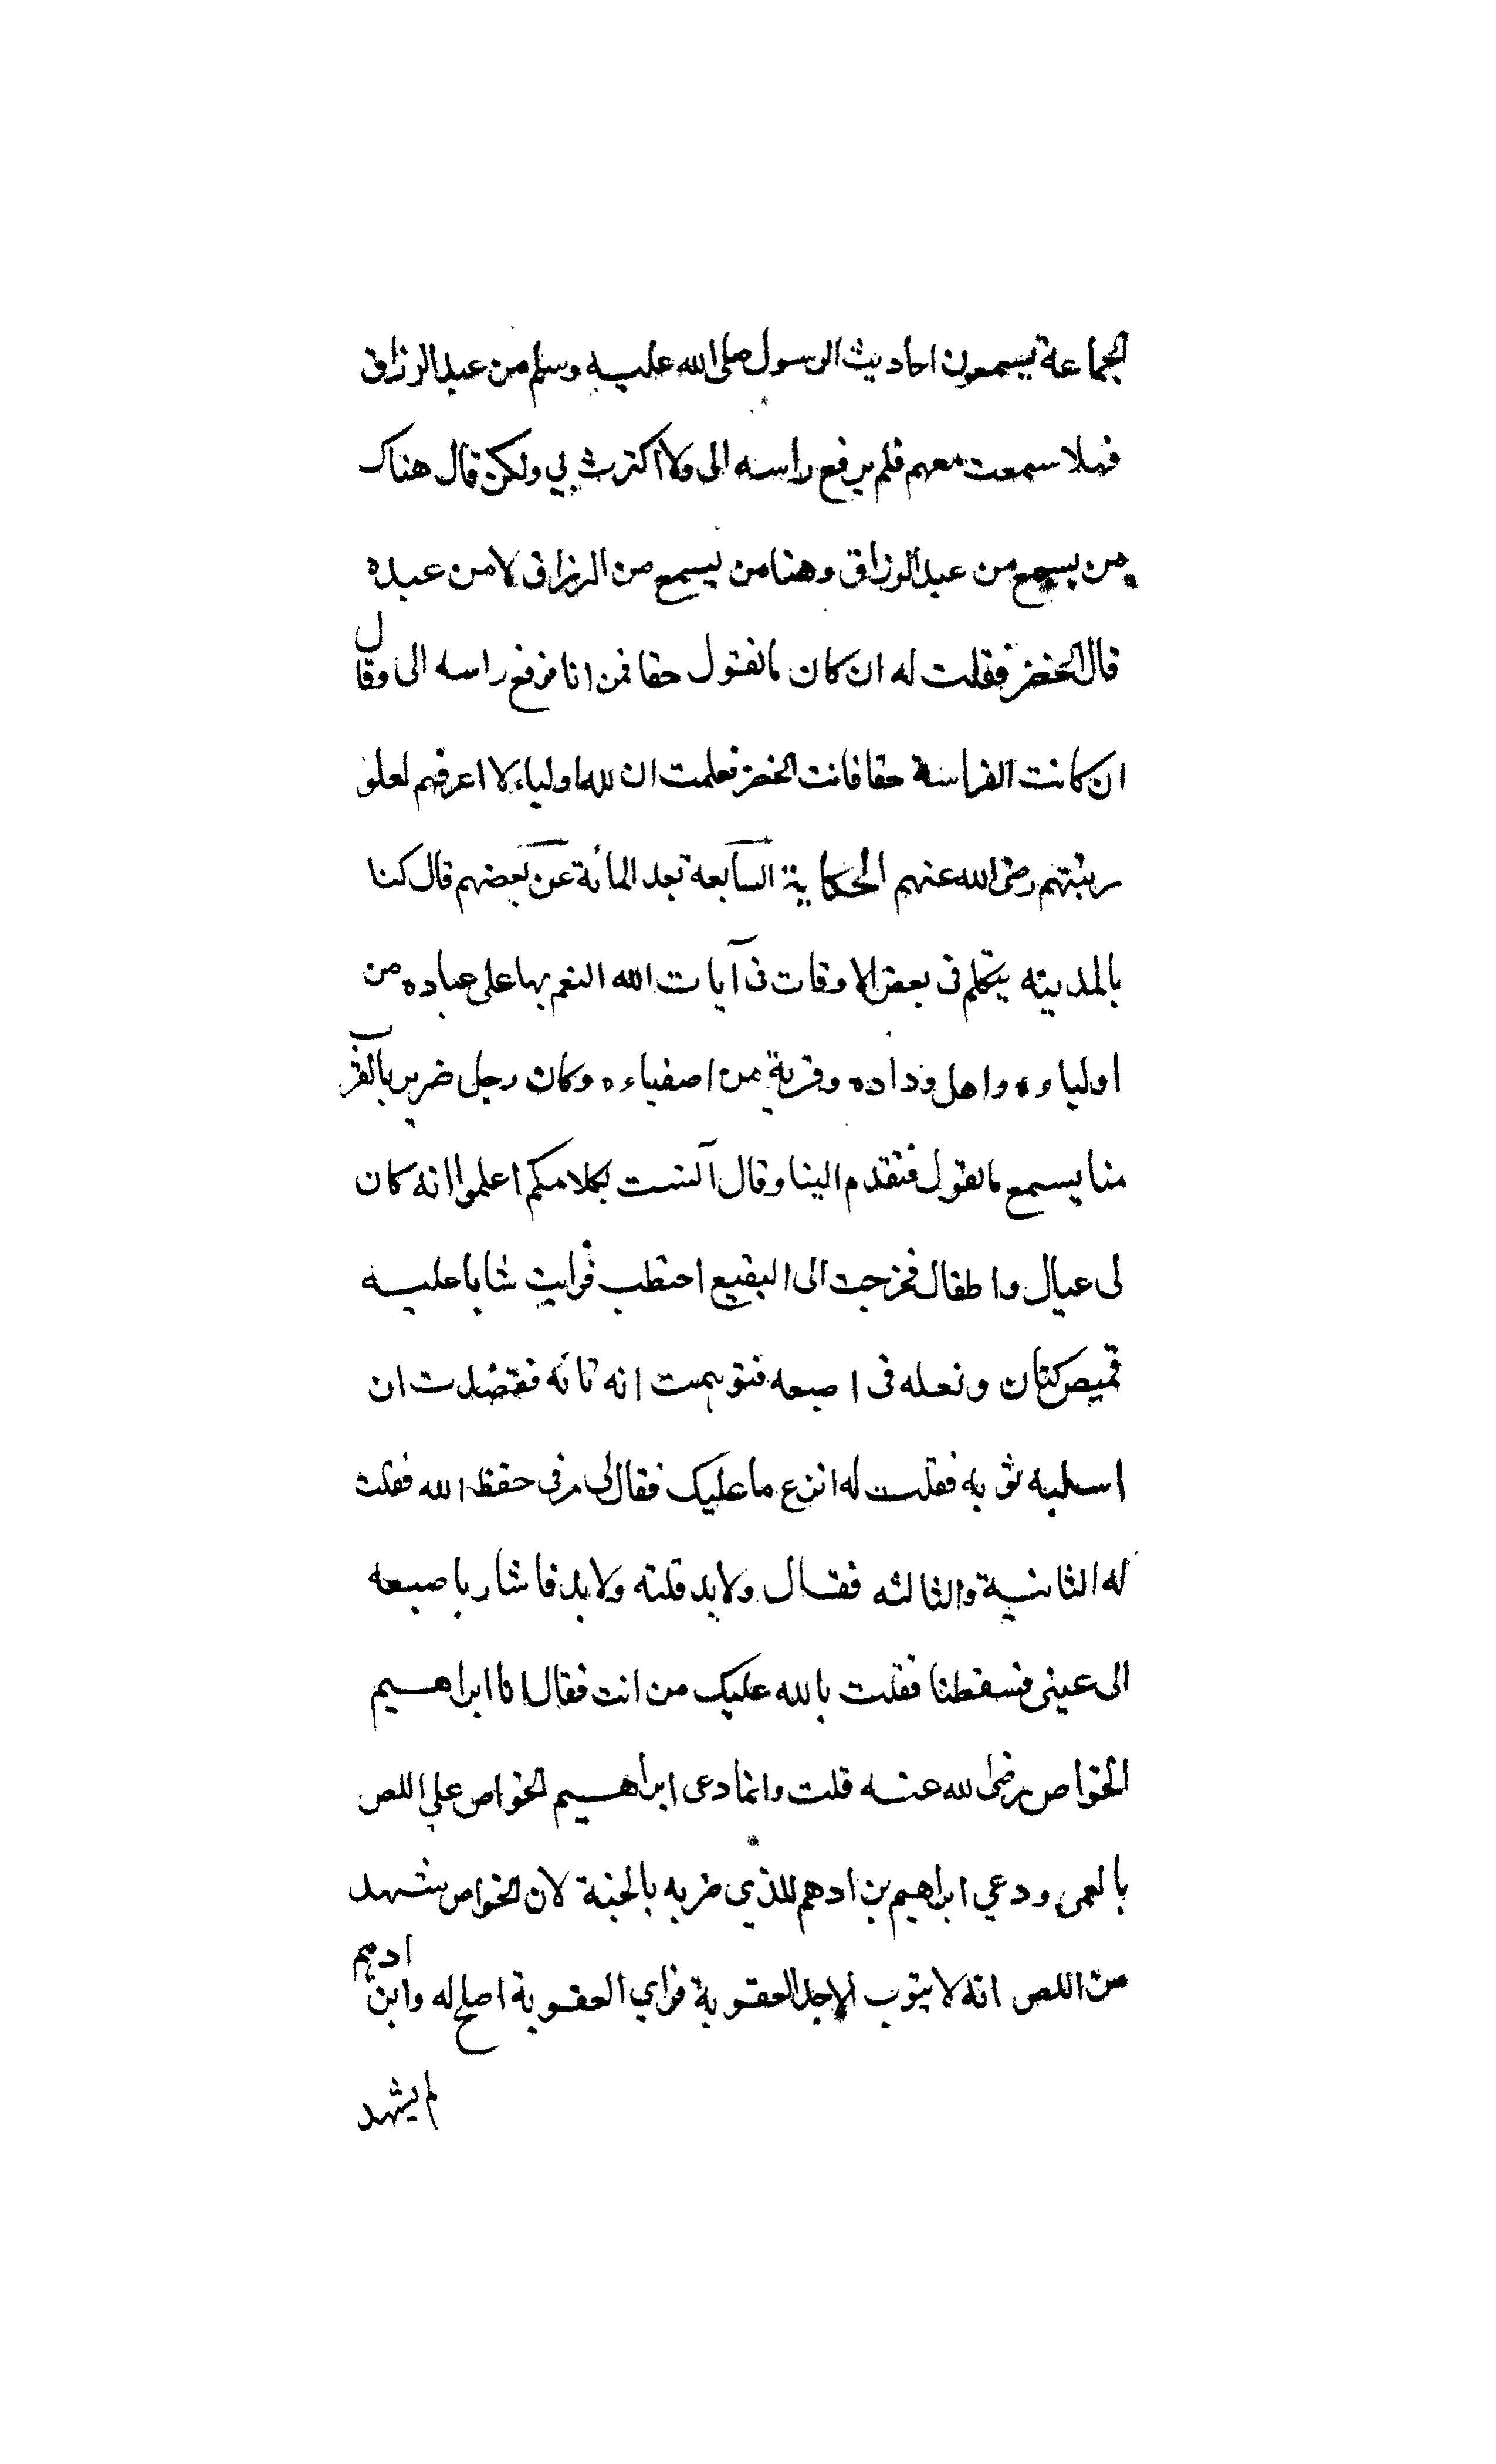 الجماعة يسمعون احاديث الرسول صلى الله عليه وسلم من عبد الرزاق
فهلا سمعت معهم فلم يرفع راسه الى ولا اكترث بي ولكن قال هناك
من يسمع من عبد الرزاق وهنا من يسمع من الرزاق لا من عبده
قال الخضر فقلت له ان كان ما تقول حقا فمن انا فرفع راسه الى وقال
ان كانت الفراسة حقا فانت الخضر فعلمت ان لله اولياء لا اعرفهم لعلو
رتبتهم رضى الله عنهم الحكاية السابعة بعد المائة عن بعضهم قال كنا
بالمدينه نتكلم في بعض الاوقات فى آيات الله النعم بها على عباده من
اولياوه واهل وداده وقربة من اصفياءه وكان رجل ضرير بالقرب
منا يسمع ما نقول فتقدم الينا وقال آنست بكلامكم اعلموا انه كان
لى عيال واطفال فخرجت الى البقيع احتطب فرايت شابا عليه
قميص كتان ونعله فى اصبعه فتوهمت انه تائه فقصدت ان
اسلبه ثوبه فقلت له انزع ما عليك فقال لى مر في حفظ الله فقلت
له الثانية والثالثه فقال ولابد قلته ولابد فاشار باصبعه
الى عينى فسقطتا فقلت بالله عليك من انت فقال انا ابراهيم
الخواص رضى الله عنه قلت وانما دعى ابراهيم الخواص على اللص
بالعمى ودعي ابراهيم بن ادهم للذي ضربه بالجنة لان الخواص شهد
من اللص انه لا يتوب الا بعد العقوبة فراي العقوبة اصلح له وابن ادهم
لم يشهد